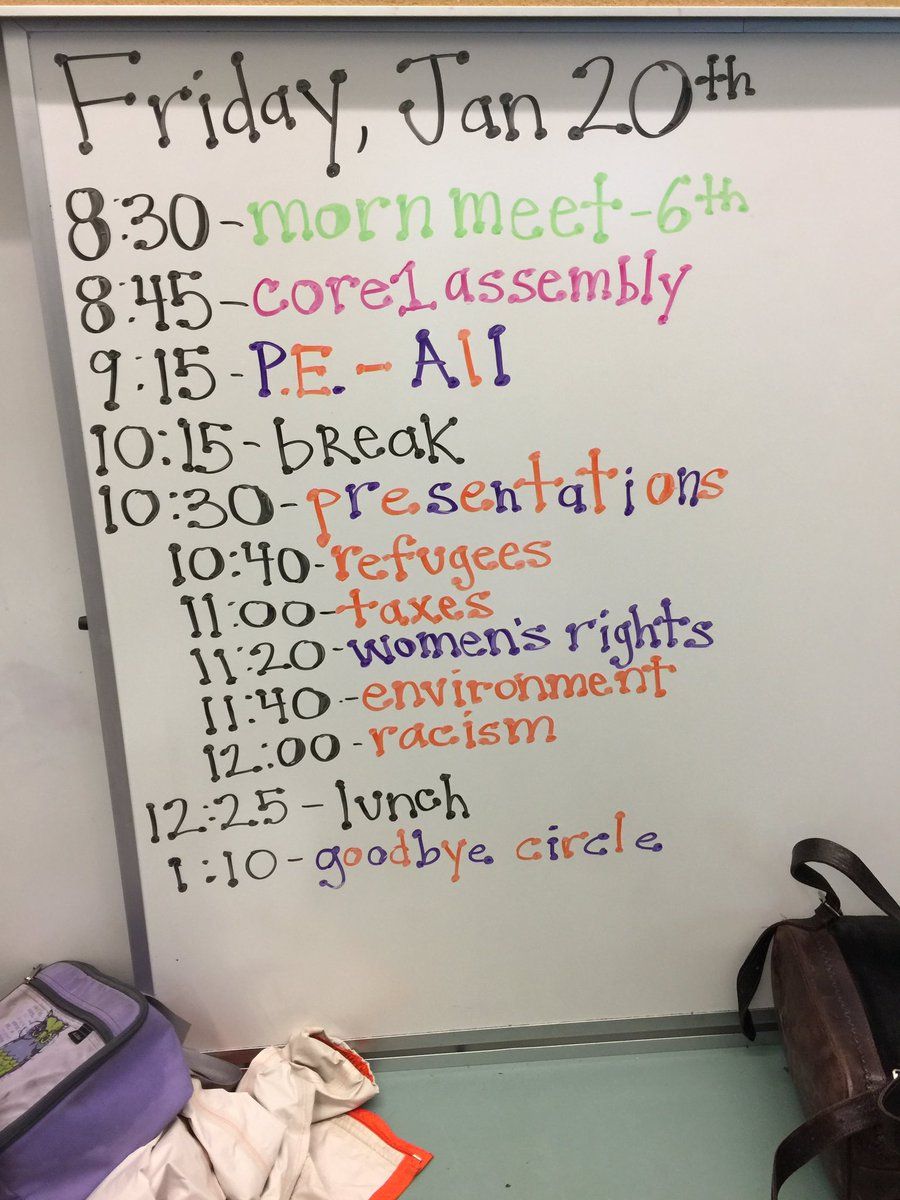 Friday, Jan 20th
8:30-morn meet-6th
8:45-core1 assembly
9:15-P.E.-All
10:15-break
10:30-presentations
10:40-refugees
11:00-taxes
11:20-women's rights
11:40-environment
12:00-racism
12:25-lunch
1:10-goodbye circle